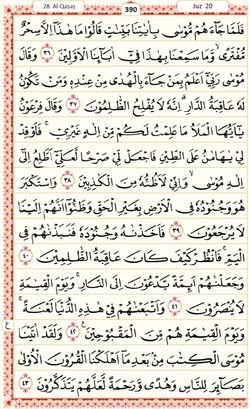 28. Al-Qaṣaṣ 390 Juz 20
فَلَمَّا جَآءَهُمْ مُّوْسٰى بِاٰيٰتِنَا بَيِّنٰتٍ قَالُوْا مَا هٰذَآ اِلَّا سِحْرٌ
مُّفْتَرًى وَّمَا سَمِعْنَا بِهٰذَا فِيْٓ اٰبَآئِنَا الْاَوَّلِيْنَ ٣٦ وَقَالَ
مُوْسٰى رَبِّيْٓ اَعْلَمُ بِمَنْ جَآءَ بِالْهُدٰى مِنْ عِنْدِهٖ وَمَنْ تَكُوْنُ
لَهٗ عَاقِبَةُ الدَّارِ ۗ اِنَّهٗ لَا يُفْلِحُ الظّٰلِمُوْنَ ٣٧ وَقَالَ فِرْعَوْنُ
يٰٓاَيُّهَا الْمَلَاُ مَا عَلِمْتُ لَكُمْ مِّنْ اِلٰهٍ غَيْرِيْ ۚ فَاَوْقِدْ
لِيْ يٰهَامٰنُ عَلَى الطِّيْنِ فَاجْعَلْ لِّيْ صَرْحًا لَّعَلِّيْٓ اَطَّلِعُ اِلٰٓى
اِلٰهِ مُوْسٰى ۙ وَاِنِّيْ لَاَظُنُّهٗ مِنَ الْكٰذِبِيْنَ ٣٨ وَاسْتَكْبَرَ
هُوَ وَجُنُوْدُهٗ فِي الْاَرْضِ بِغَيْرِ الْحَقِّ وَظَنُّوْٓا اَنَّهُمْ اِلَيْنَا
لَا يُرْجَعُوْنَ ٣٩ فَاَخَذْنٰهُ وَجُنُوْدَهٗ فَنَبَذْنٰهُمْ فِي
الْيَمِّ ۚ فَانْظُرْ كَيْفَ كَانَ عَاقِبَةُ الظّٰلِمِيْنَ ٤٠
وَجَعَلْنٰهُمْ اَئِمَّةً يَّدْعُوْنَ اِلَى النَّارِ ۚ وَيَوْمَ الْقِيٰمَةِ
لَا يُنْصَرُوْنَ ٤١ وَاَتْبَعْنٰهُمْ فِيْ هٰذِهِ الدُّنْيَا لَعْنَةً ۚ
وَيَوْمَ الْقِيٰمَةِ هُمْ مِّنَ الْمَقْبُوْحِيْنَ ٤٢ وَلَقَدْ اٰتَيْنَا
مُوْسَى الْكِتٰبَ مِنْ بَعْدِ مَآ اَهْلَكْنَا الْقُرُوْنَ الْاُوْلٰى
بَصَآئِرَ لِلنَّاسِ وَهُدًى وَّرَحْمَةً لَّعَلَّهُمْ يَتَذَكَّرُوْنَ ٤٣